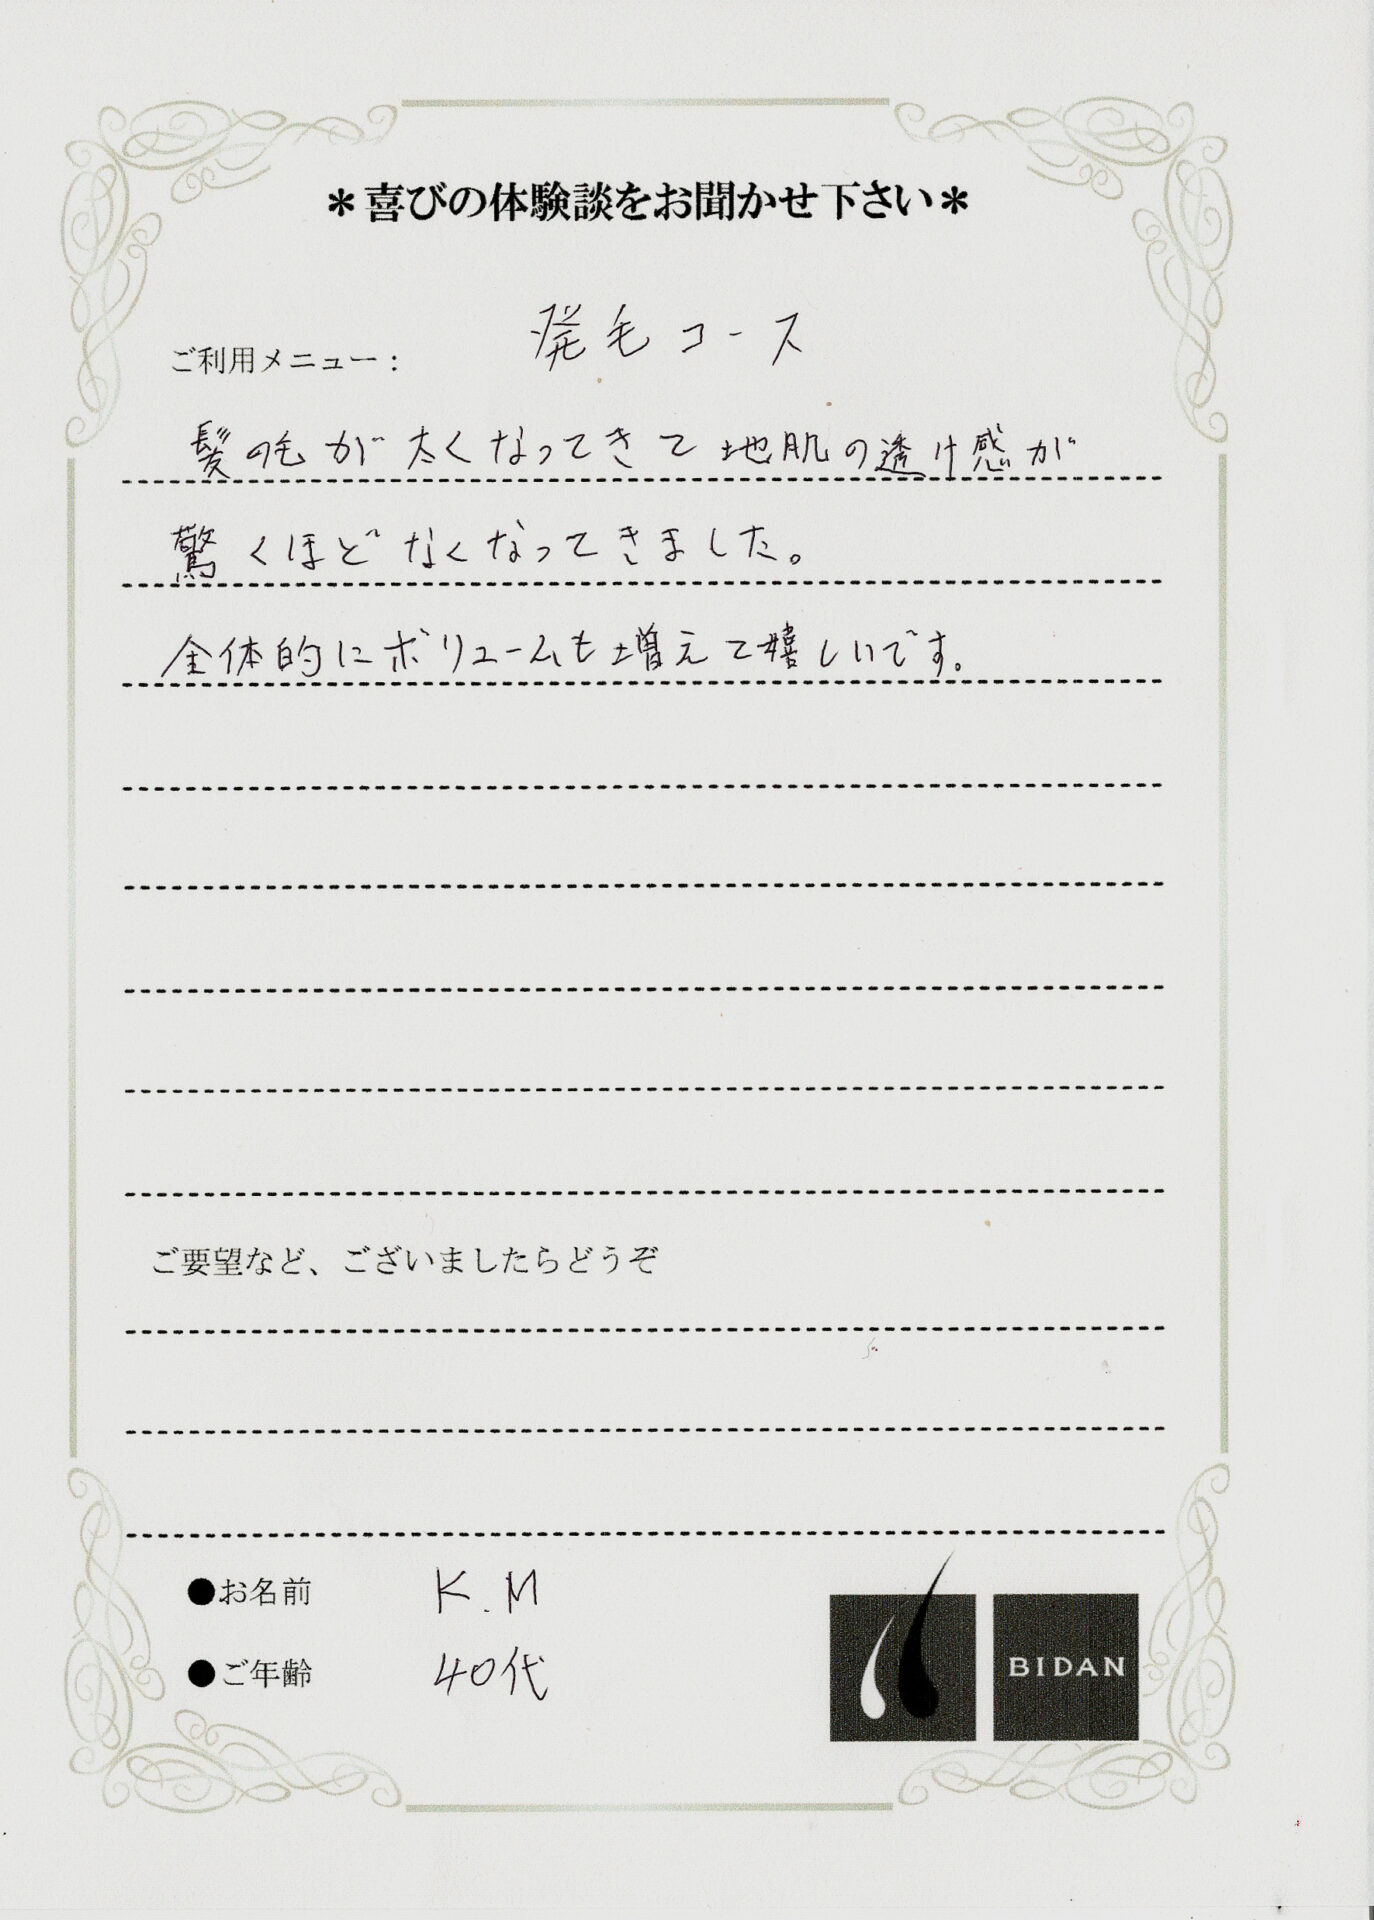 ＊喜びの体験談をお聞かせ下さい＊
ご利用メニュー： 発毛コース
髪の毛が太くなってきて地肌の透け感が
驚くほどなくなってきました。
全体的にボリュームも増えて嬉しいです。
ご要望など、ございましたらどうぞ
●お名前 K.M
●ご年齢 40代
BIDAN